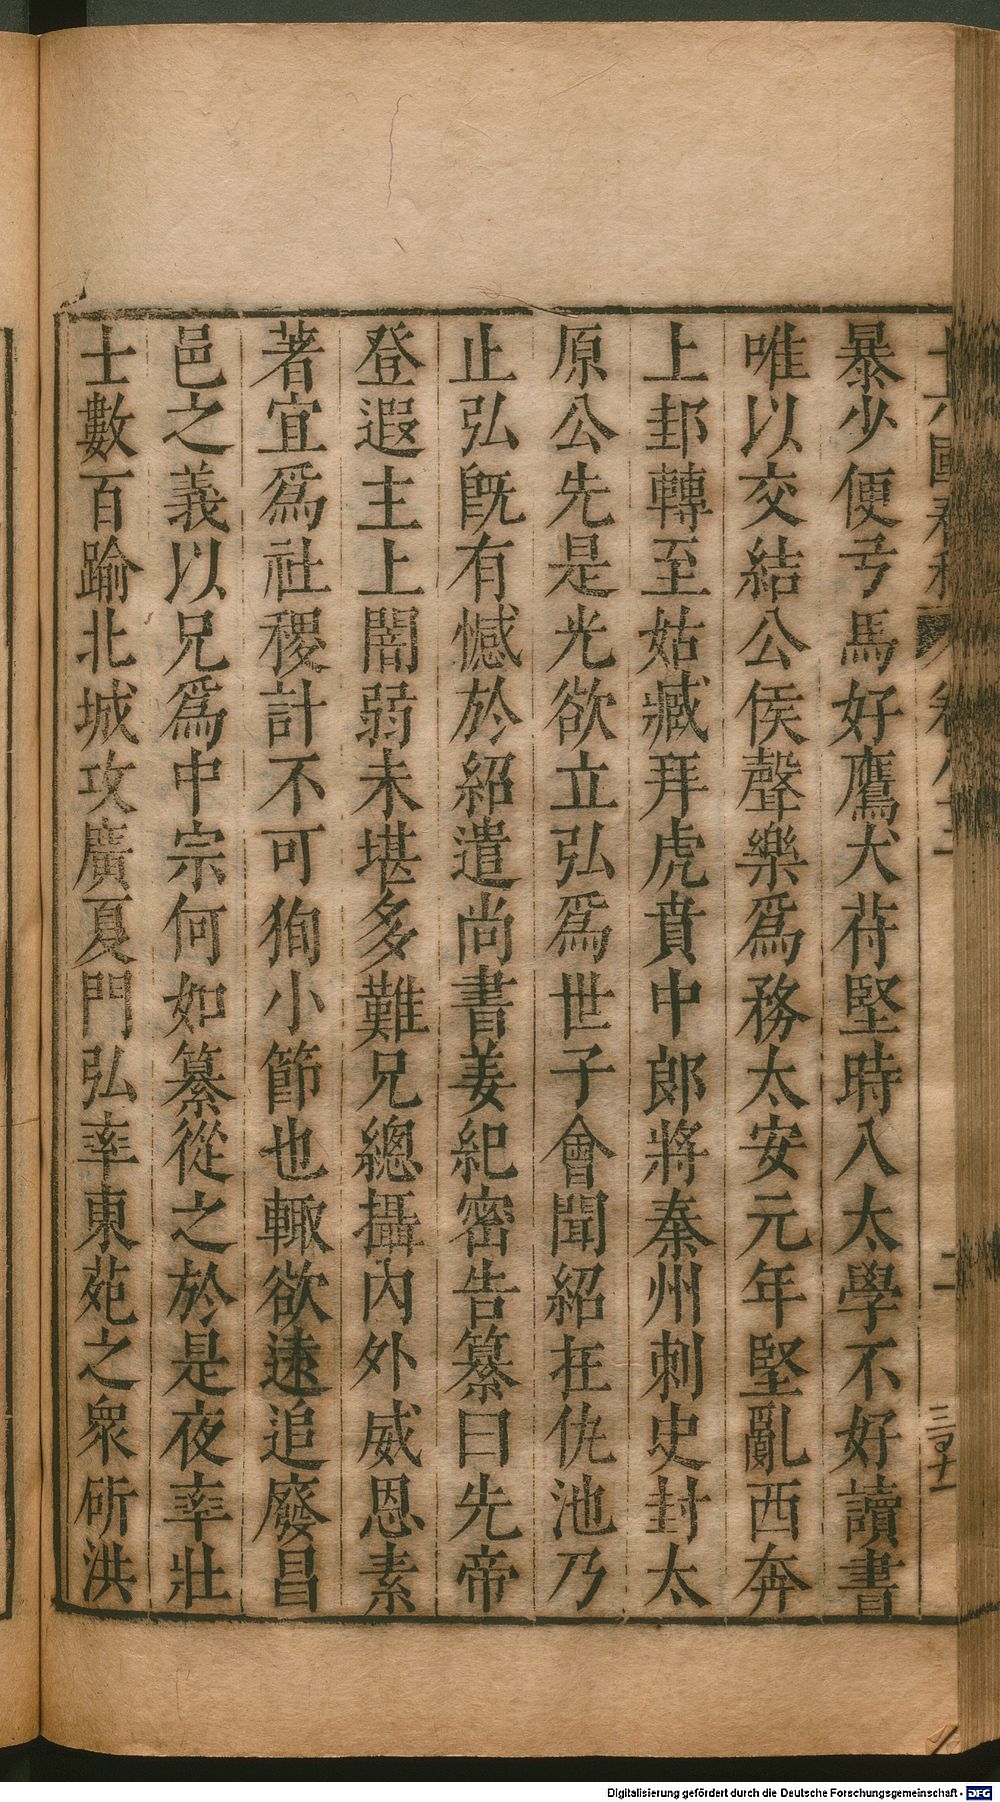 暴少便弓馬好鷹犬苻堅時入太學不好讀書
唯以交結公侯聲樂爲務太安元年堅亂西奔
上邽轉至姑臧拜虎賁中郎將秦州刺史封太
原公先是光欲立弘爲世子會聞紹在仇池乃
止弘旣有憾於紹遣尚書姜紀密告纂曰先帝
登遐主上闇弱未堪多難兄總攝內外威恩素
著宜爲社稷計不可狥小節也輒欲遠追廢昌
邑之義以兄爲中宗何如纂從之於是夜率壯
士數百踰北城攻廣夏門弘率東苑之衆斫洪
Digitalisierung gefördert durch die Deutsche Forschungsgemeinschaft - DFG